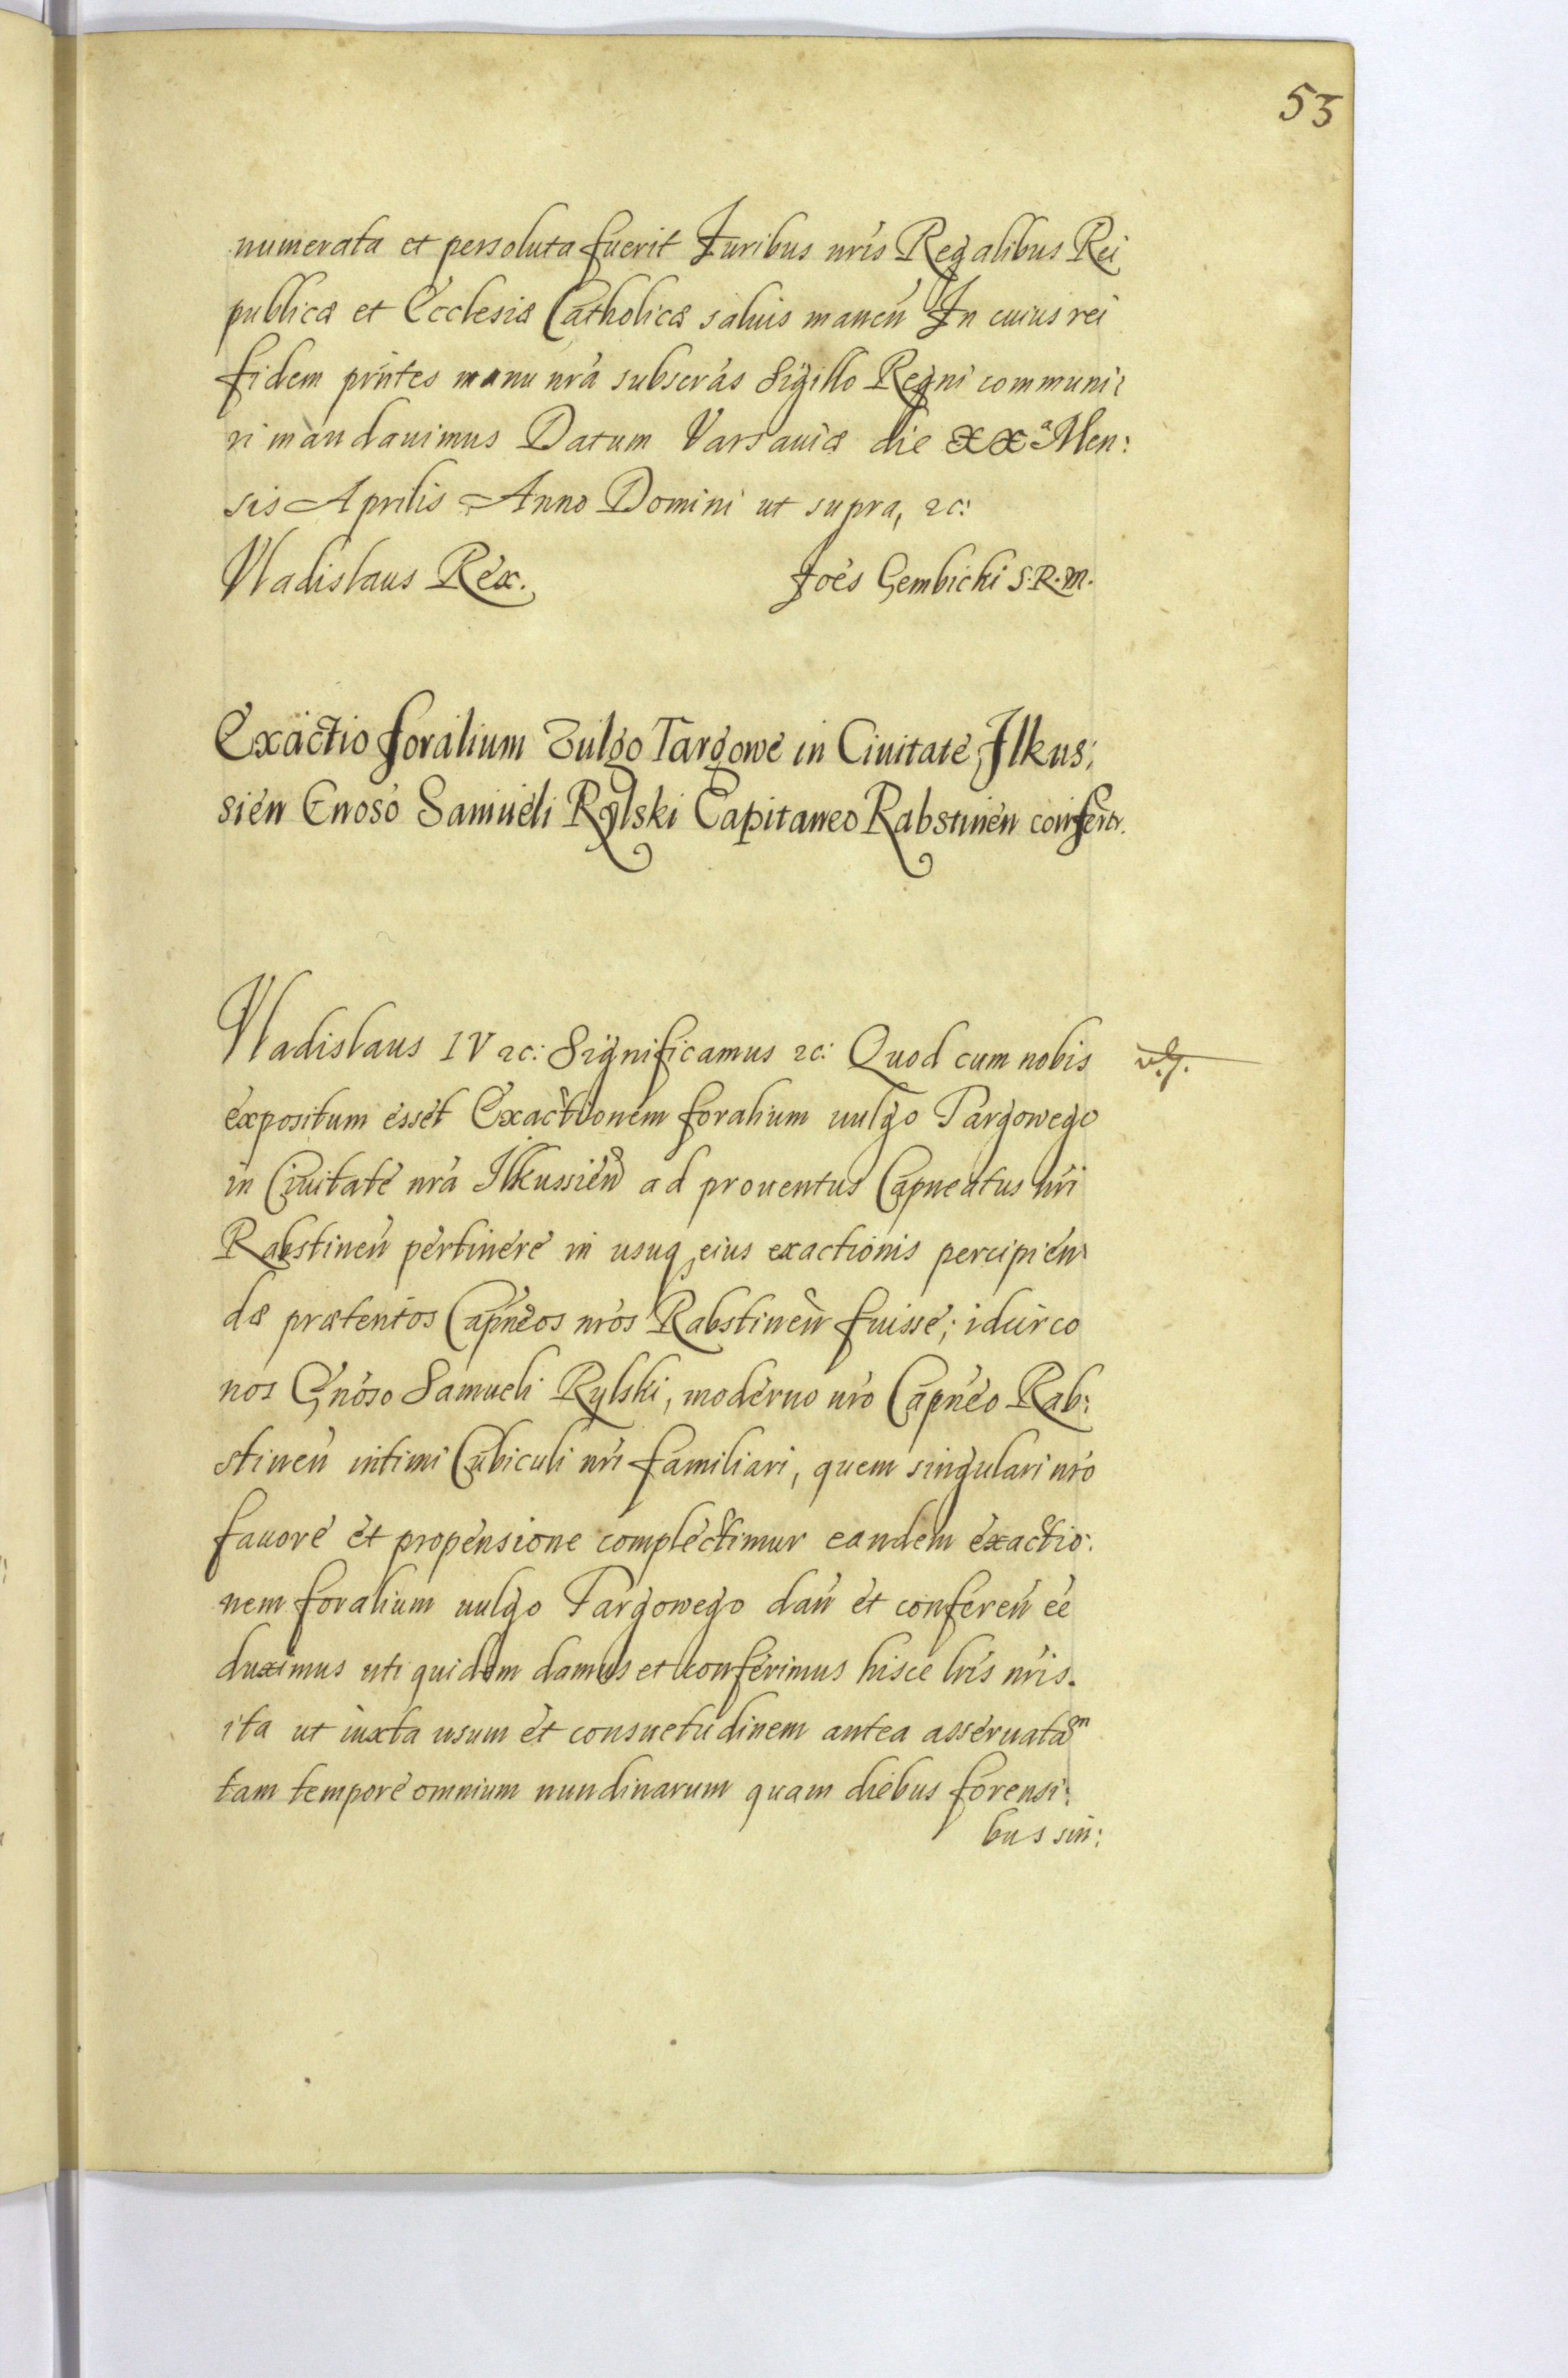 53
numerata et persoluta fuerit Iuribus nris Regalibus Rei
publicæ et Ecclesiæ Catholicæ saluis maneñ In cuius rei
fidem pñtes manu nrã subscrãs Sigillo Regni communi:
ri mandauimus Datum Varsauiæ die XXᵃ Men:
sis Aprilis Anno Domini ut supra, &c:
Vladislaus Rex. Joẽs Gembicki S.R.M.
Exactio foralium vulgo Targowe in Ciuitate Ilkus:
sien Gnoso Samueli Rylski Capitaneo Rabstineñ confertr.
Vladislaus IV &c: Significamus &c: Quod cum nobis
expositum esset Exactionem foralium uulgo Targowego
in Ciuitate nrã Ilkussieñ ad prouentus Capneatus nri
Rabstineñ pertinere in usuq eius exactionis percipien
dæ prætentos Capneos nros Rabstineñ fuisse; idcirco
nos Gnoso Samueli Rylski, moderno nro Capneo Rab:
stineñ intimi Cubiculi nri familiari, quem singulari nro
fauore et propensione complectimur eandem exactio:
nem foralium uulgo Targowego dañ et confereñ eẽ
duximus uti quidem damus et conferimus hisce lris nris.
ita ut iuxta usum et consuetudinem antea asseruatãᵐ
tam tempore omnium nundinarum quam diebus forensi:
bus sin: